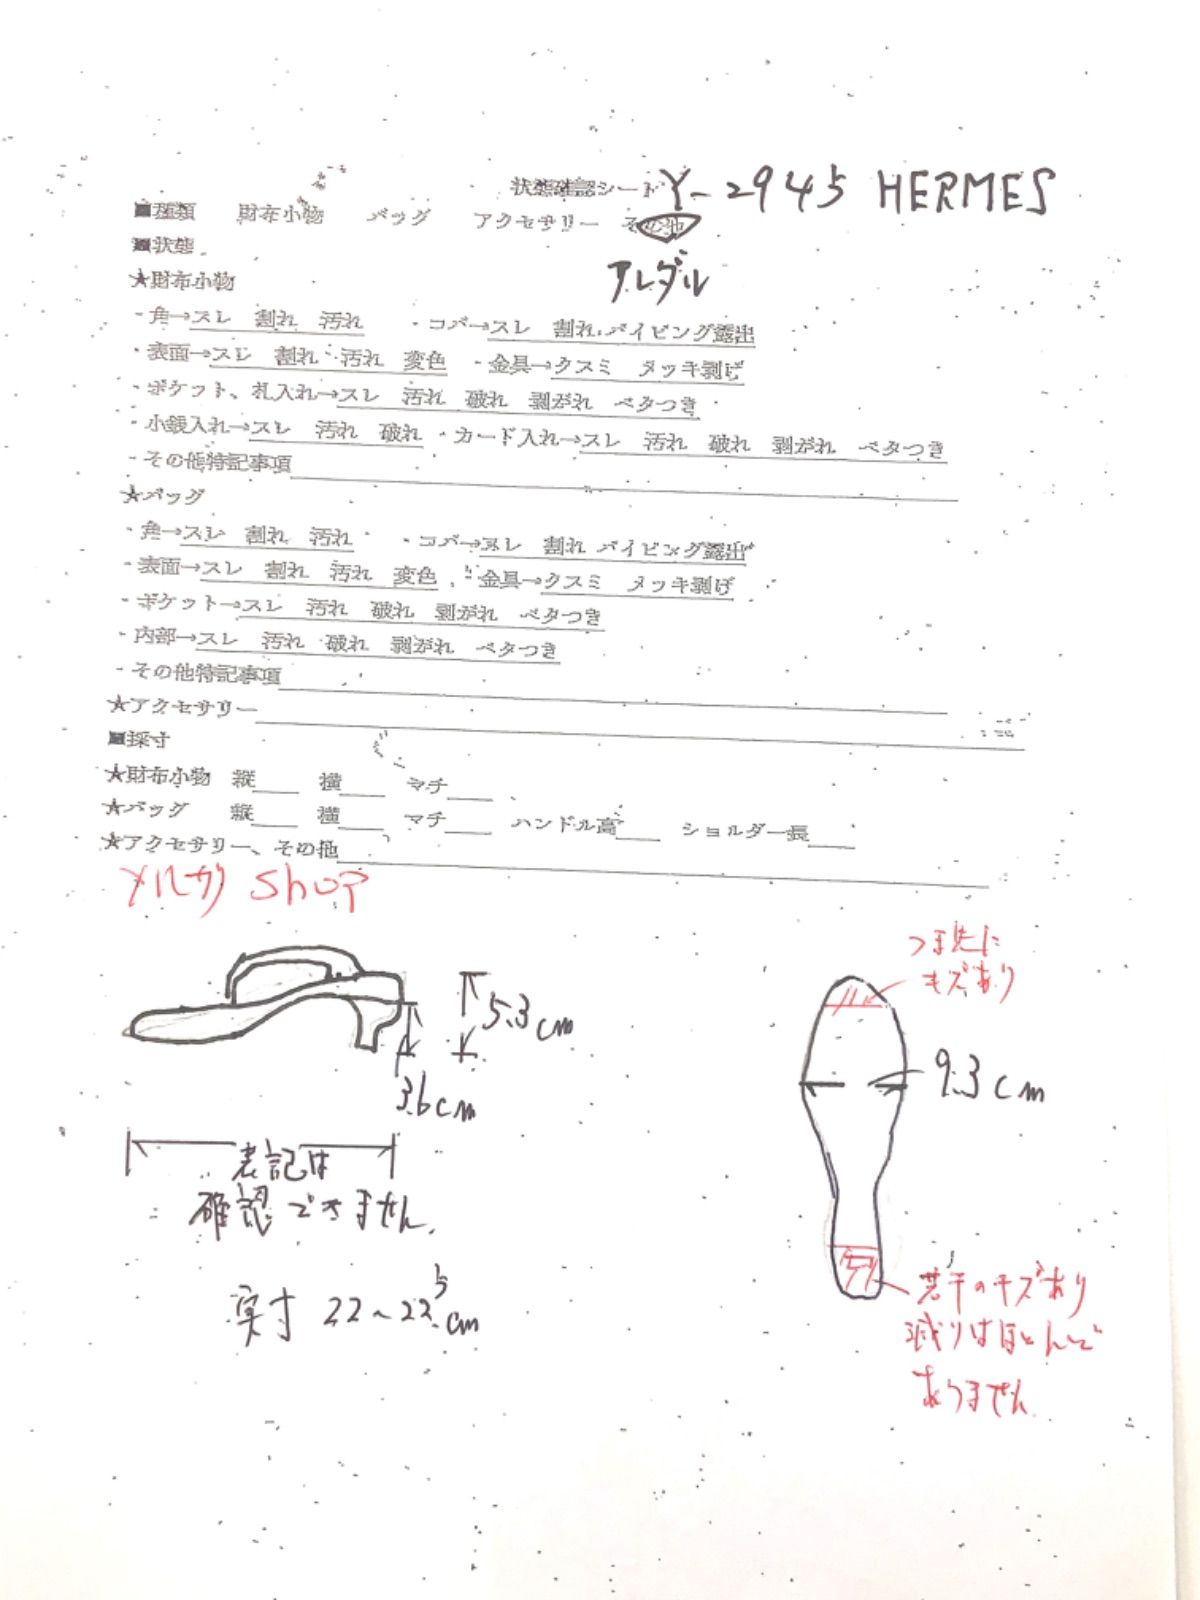 状態確認シート Y-2945 HERMES
■種類 財布小物 バッグ アクセサリー その他
■状態 アレダル
★財布小物
・角→スレ 割れ 汚れ ・コバ→スレ 割れ パイピング露出
・表面→スレ 割れ 汚れ 変色 ・金具→クスミ メッキ剥げ
・ポケット、札入れ→スレ 汚れ 破れ 剥がれ ベタつき
・小銭入れ→スレ 汚れ 破れ ・カード入れ→スレ 汚れ 破れ 剥がれ ベタつき
・その他特記事項
★バッグ
・角→スレ 割れ 汚れ ・コバ→スレ 割れ パイピング露出
・表面→スレ 割れ 汚れ 変色 ・金具→クスミ メッキ剥げ
・ポケット→スレ 汚れ 破れ 剥がれ ベタつき
・内部→スレ 汚れ 破れ 剥がれ ベタつき
・その他特記事項
★アクセサリー
■採寸
★財布小物 縦 横 マチ
★バッグ 縦 横 マチ ハンドル高 ショルダー長
★アクセサリー、その他
メルカリ shop
つま先に
キズあり
5.3cm
3.6cm
9.3cm
表記は
確認できません。
実寸 22~22.5cm
若干のキズあり
減りはほとんど
ありません